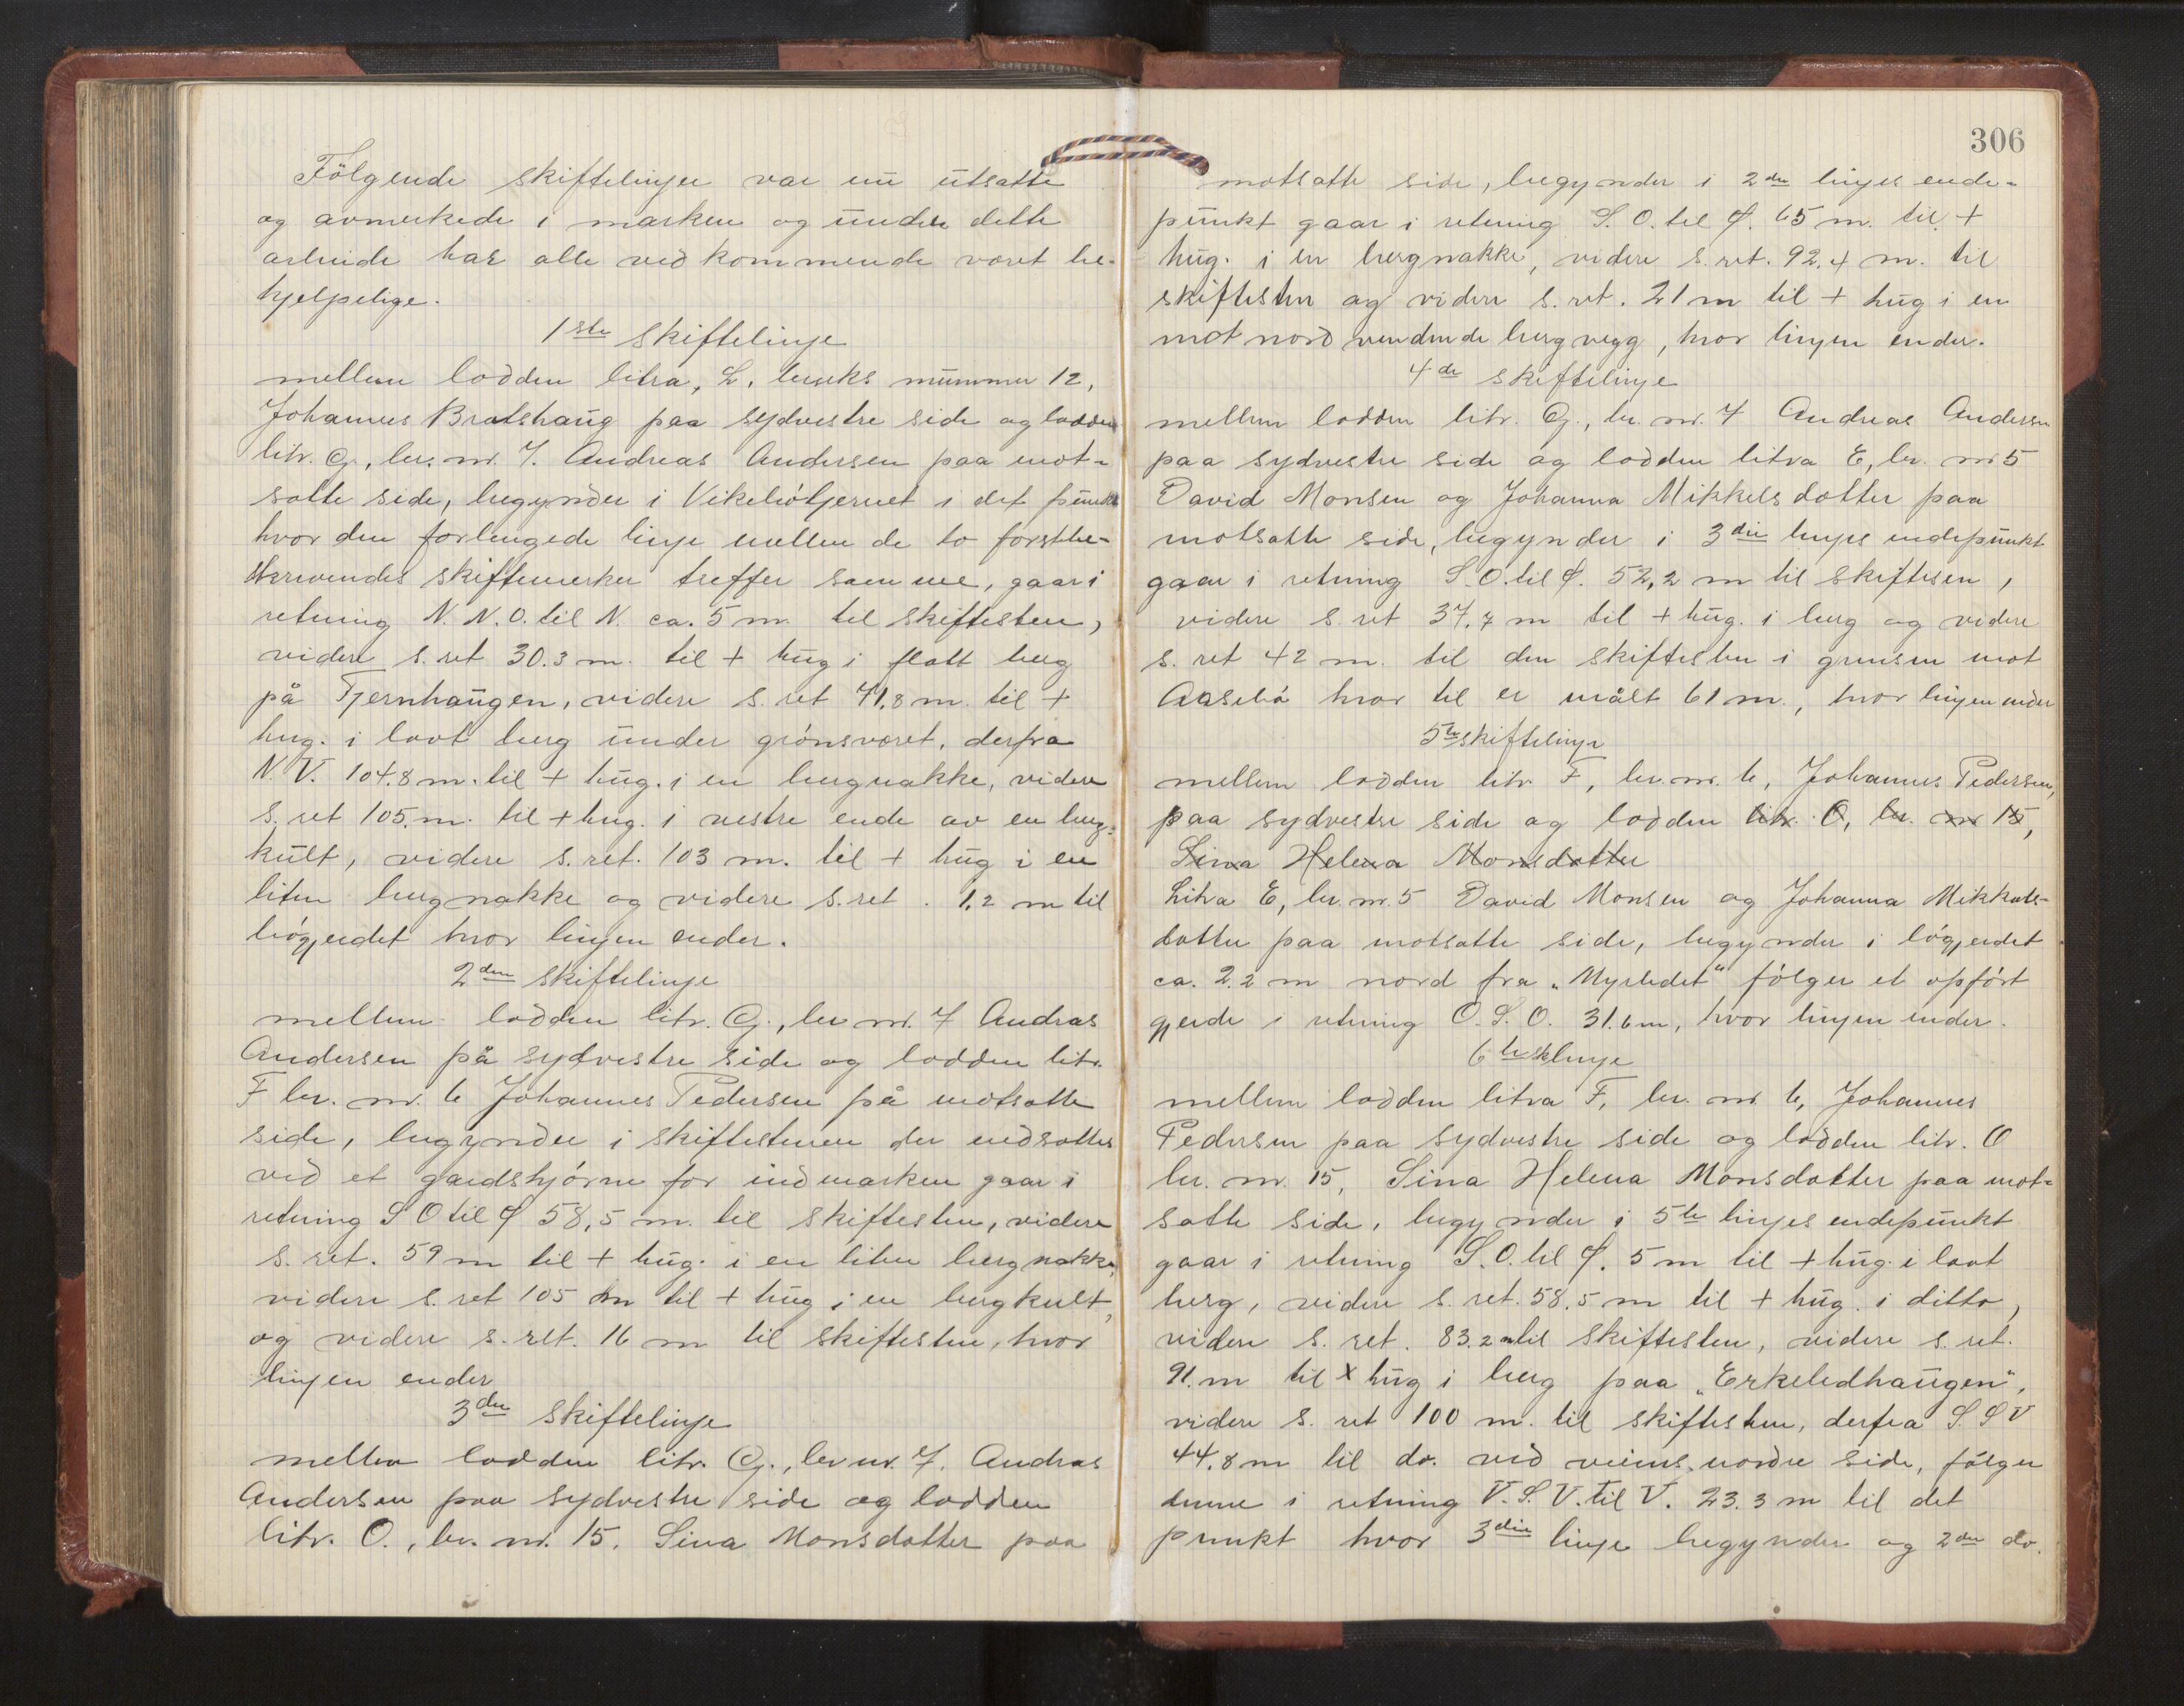 Følgende skiftelinjer var nu utsatte
og avmerkede i marken og under dette
arbeide har alle vedkommende været be-
hjelpelige.
1ste skiftelinje
mellem lodden litra, L. bruks nummer 12,
Johannes Bratshaug paa sydvestre side og lodden
litr. G., br. nr. 7. Andreas Andersen paa mot-
satte side, begynder i Vikebøtjernet i det punkt
hvor den forlengede linje mellem de to førstbe-
skrivendes skiftemerker treffer samme, gaar i
retning N. N. O. til N. ca. 5 m. til skiftesten,
videre s. ret 30.3 m. til + hug i flatt berg
på Tjernhaugen, videre s. ret 71,8 m. til +
hug. i lavt berg under grønsværet, derfra
N. V. 104.8 m. til + hug. i en bergnakke, videre
s. ret 105. m. til + hug. i vestre ende av en berg-
kult, videre s. ret. 103 m. til + hug i en
liten bergnakke og videre s. ret. 1,2 m til
bøgjerdet hvor linjen ender.
2den skiftelinje
mellem lodden litr. G., br. nr. 7 Andras
Andersen på sydvestre side og lodden litr.
F br. nr. 6 Johannes Pedersen på motsatte
side, begynder i skiftestenen der nedsattes
ved et gardshjørne for indmarken gaar i
retning S O til S 58,5 m. til skiftesten, videre
s. ret. 59 m til + hug. i en liten bergnakke,
videre s. ret 105 m til + hug i en bergkult,
og videre s. ret. 16 m til skiftesten, hvor
linjen ender
3die skiftelinje
mellem lodden litr. G., br nr. 7. Andras
Andersen paa sydvestre side og lodden
litr. O., br. nr. 15. Sina Monsdotter paa
306
motsatte side, begynder i 2den linjes ende-
punkt gaar i retning S. O. til S. 65 m. til +
hug. i en bergnakke, videre s. ret. 92.4 m. til
skiftesten og videre s. ret. 21 m til + hug i en
mot nord vendende bergvegg, hvor linjen ender.
4de skiftelinje
mellem lodden litr. G., br. nr. 7 Andreas Andersen
paa sydvestre side og lodden litra E, br. nr 5
David Monsen og Johanna Mikkelsdotter paa
motsatte side, begynder i 3die linjes endepunkt
gaar i retning S. O. til S. 52,2 m til skiftesen,
videre s. ret 37,7 m til + hug. i berg og videre
s. ret 42 m. til den skiftesten i grensen mot
Aasebø hvor til er målt 61 m., hvor linjen ender
5te skiftelinje
mellem lodden litr. F, br. nr. 6, Johannes Pedersen,
paa sydvestre side og lodden litr. O, br. nr 15,
Sina Helena Monsdotter
Litra E, br. nr. 5 David Monsen og Johanna Mikkels-
dotter paa motsatte side, begynder i bøgjerdet
ca. 2,2 m nord fra „Myrledet" følger et opført
gjerde i retning O. S. O. 31.6 m, hvor linjen ender.
6te sklinje
mellem lodden litra F, br. nr 6, Johannes
Pedersen paa sydvestre side og lodden litr. O
br. nr. 15, Sina Helena Monsdotter paa mot-
satte side, begynder i 5te linjes endepunkt
gaar i retning S. O. til S. 5 m til + hug. i lavt
berg, videre s. ret. 58,5 m til + hug. i ditto,
videre s. ret. 83.2 m til skiftesten, videre s. ret.
91. m til x hug i berg paa „Erkeledhaugen",
videre s. ret 100 m. til skiftesten, derfra S. S V
44,8 m til do. ved veiens nordre side, følger
denne i retning V. S. V. til V. 23.3 m til det
punkt hvor 3die linje begynder og 2den do.